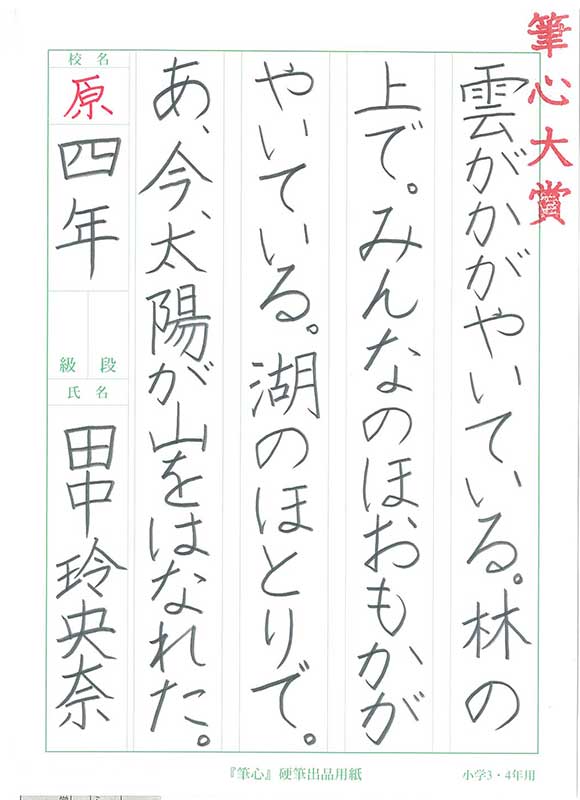 筆心大賞
雲ががやいている。林の
上で。みんなのほおもかが
やいている。湖のほとりで。
あ、今、太陽が山をはなれた。
校名
原
四年
級 段
氏名
田中玲央奈
『筆心』硬筆出品用紙
小学3・4年用